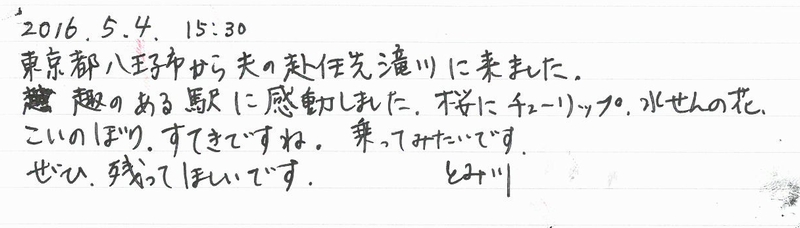 2016.5.4. 15:30
東京都八王子市から夫の赴任先滝川に来ました。
趣のある駅に感動しました。桜にチューリップ、水せんの花、
こいのぼり、すてきですね。乗ってみたいです。
ぜひ、残ってほしいです。 とみ川